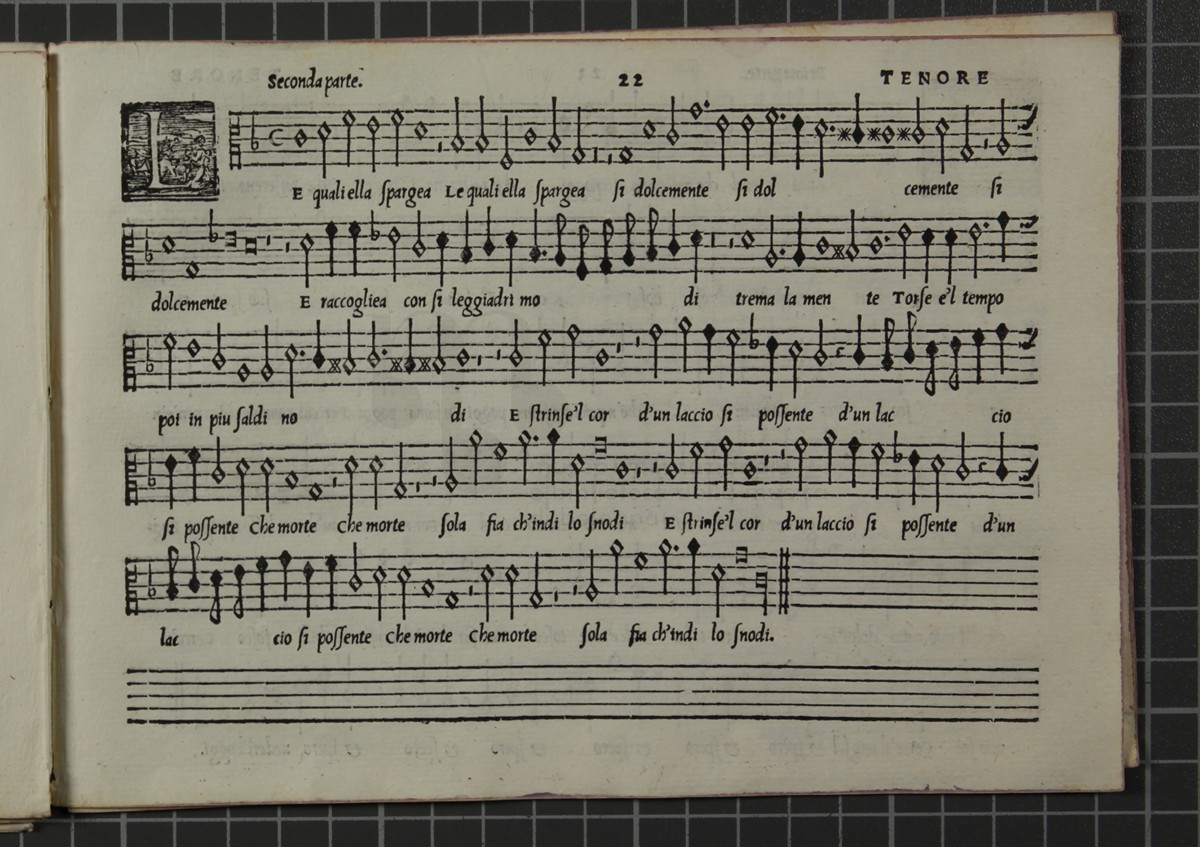 Seconda parte. 22 TENORE
LE quali ella ſpargea Le quali ella ſpargea ſi dolcemente ſi dol cemente ſi
dolcemente E raccogliea con ſi leggiadri mo di trema la men te Torſe e'l tempo
poi in piu ſaldi no di E ſtrinſe'l cor d'un laccio ſi poſſente d'un lac cio
ſi poſſente Che morte Che morte ſola fia ch'indi lo ſnodi E ſtrinſe'l cor d'un laccio ſi poſſente d'un
lac cio ſi poſſente Che morte Che morte ſola fia ch'indi lo ſnodi.